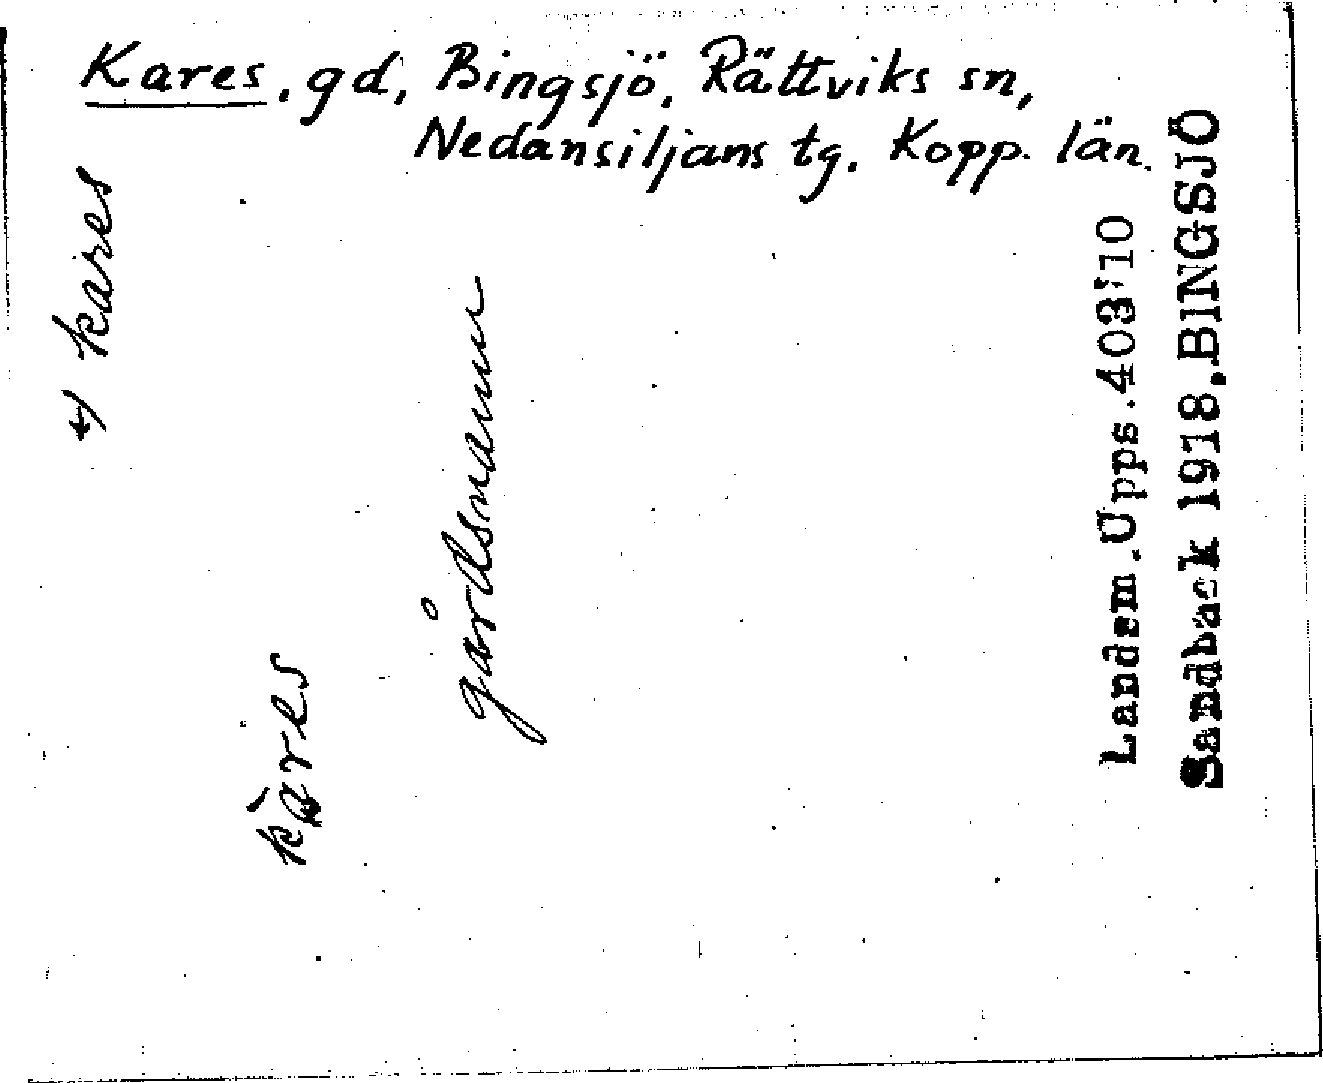 Kares, gd, Bingsjö, Rättviks sn,
Nedansiljans tg. Kopp. län.
kares
kàres
gårdsnamn
Landsm. Upps. 403:10
Sandback 1918. BINGSJÖ